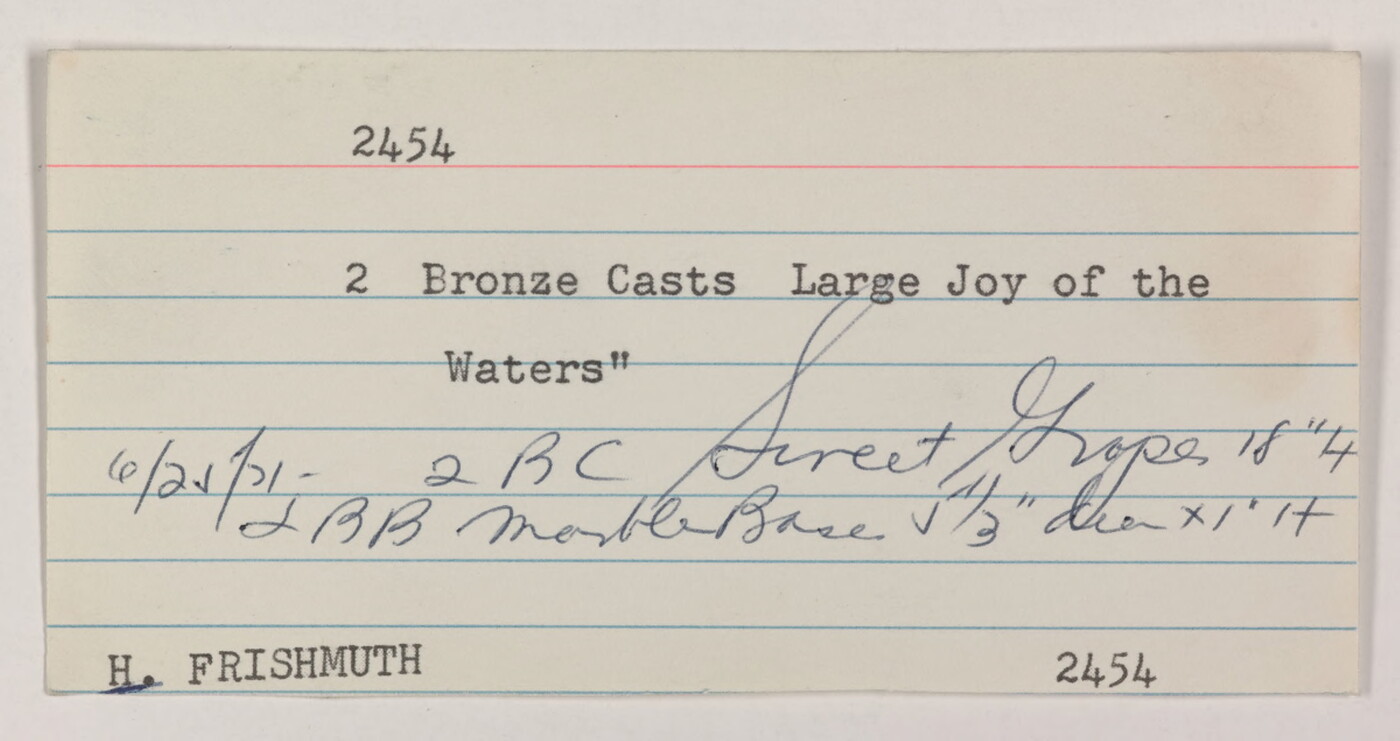 2454
2 Bronze Casts Large Joy of the
Waters"
2 B C Sweet Grapes 18"
2 BB Marble Base 5 1/2" dia x 1" H
H. FRISHMUTH 2454